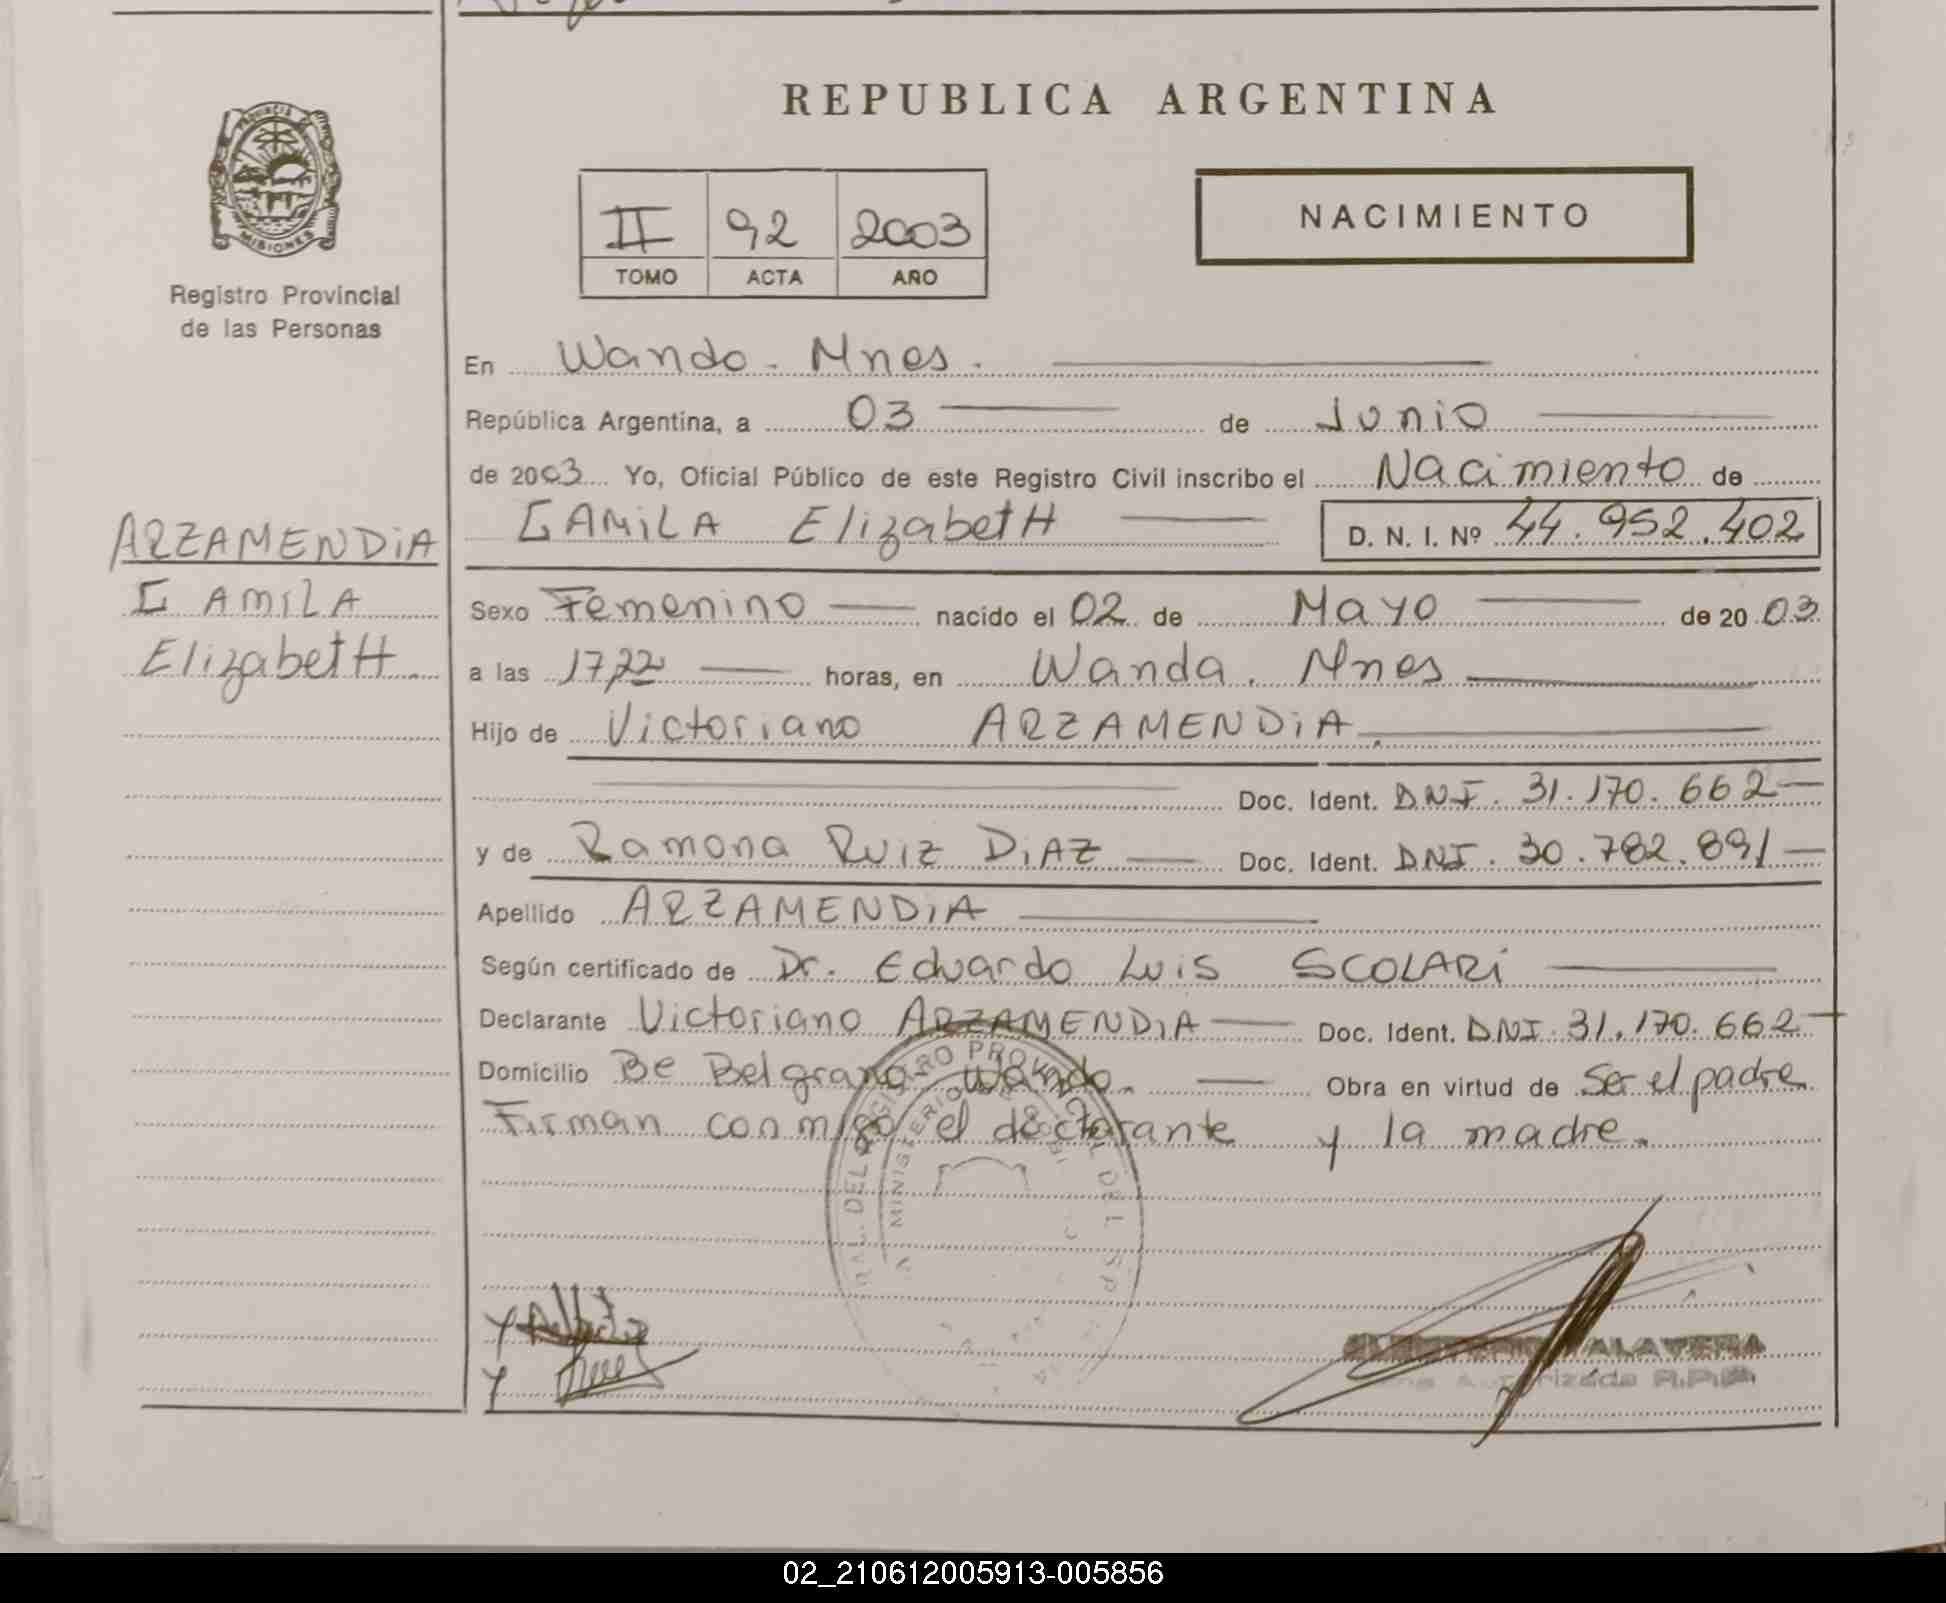 REPUBLICA ARGENTINA
PROVINCIA
MISIONES
Registro Provincial
de las Personas
II 92 2003
TOMO ACTA AÑO
NACIMIENTO
En Wanda - Mnes.
República Argentina, a 03 de Junio
de 2003 Yo, Oficial Público de este Registro Civil inscribo el Nacimiento de
CAMILA ElizabetH D. N. I. Nº 44.952.402
ARZAMENDiA
CAMILA
ElizabetH.
Sexo Femenino nacido el 02 de Mayo de 20 03
a las 17,22 horas, en Wanda. Mnes
Hijo de Victoriano ARZAMENDiA.
Doc. Ident. DNI. 31.170.662
y de Ramona Ruiz DiAZ Doc. Ident. DNI. 30.782.891
Apellido ARZAMENDiA
Según certificado de Dr. Eduardo Luis SCOLARi
Declarante Victoriano ARZAMENDiA Doc. Ident. DNI. 31.170.662
Domicilio Be Belgrano Wanda. Obra en virtud de Ser el padre
Firman conmigo el declarante y la madre.
REGISTRO PROVINCIAL DE
MINISTERIO DE
ALAVERA
02_210612005913-005856